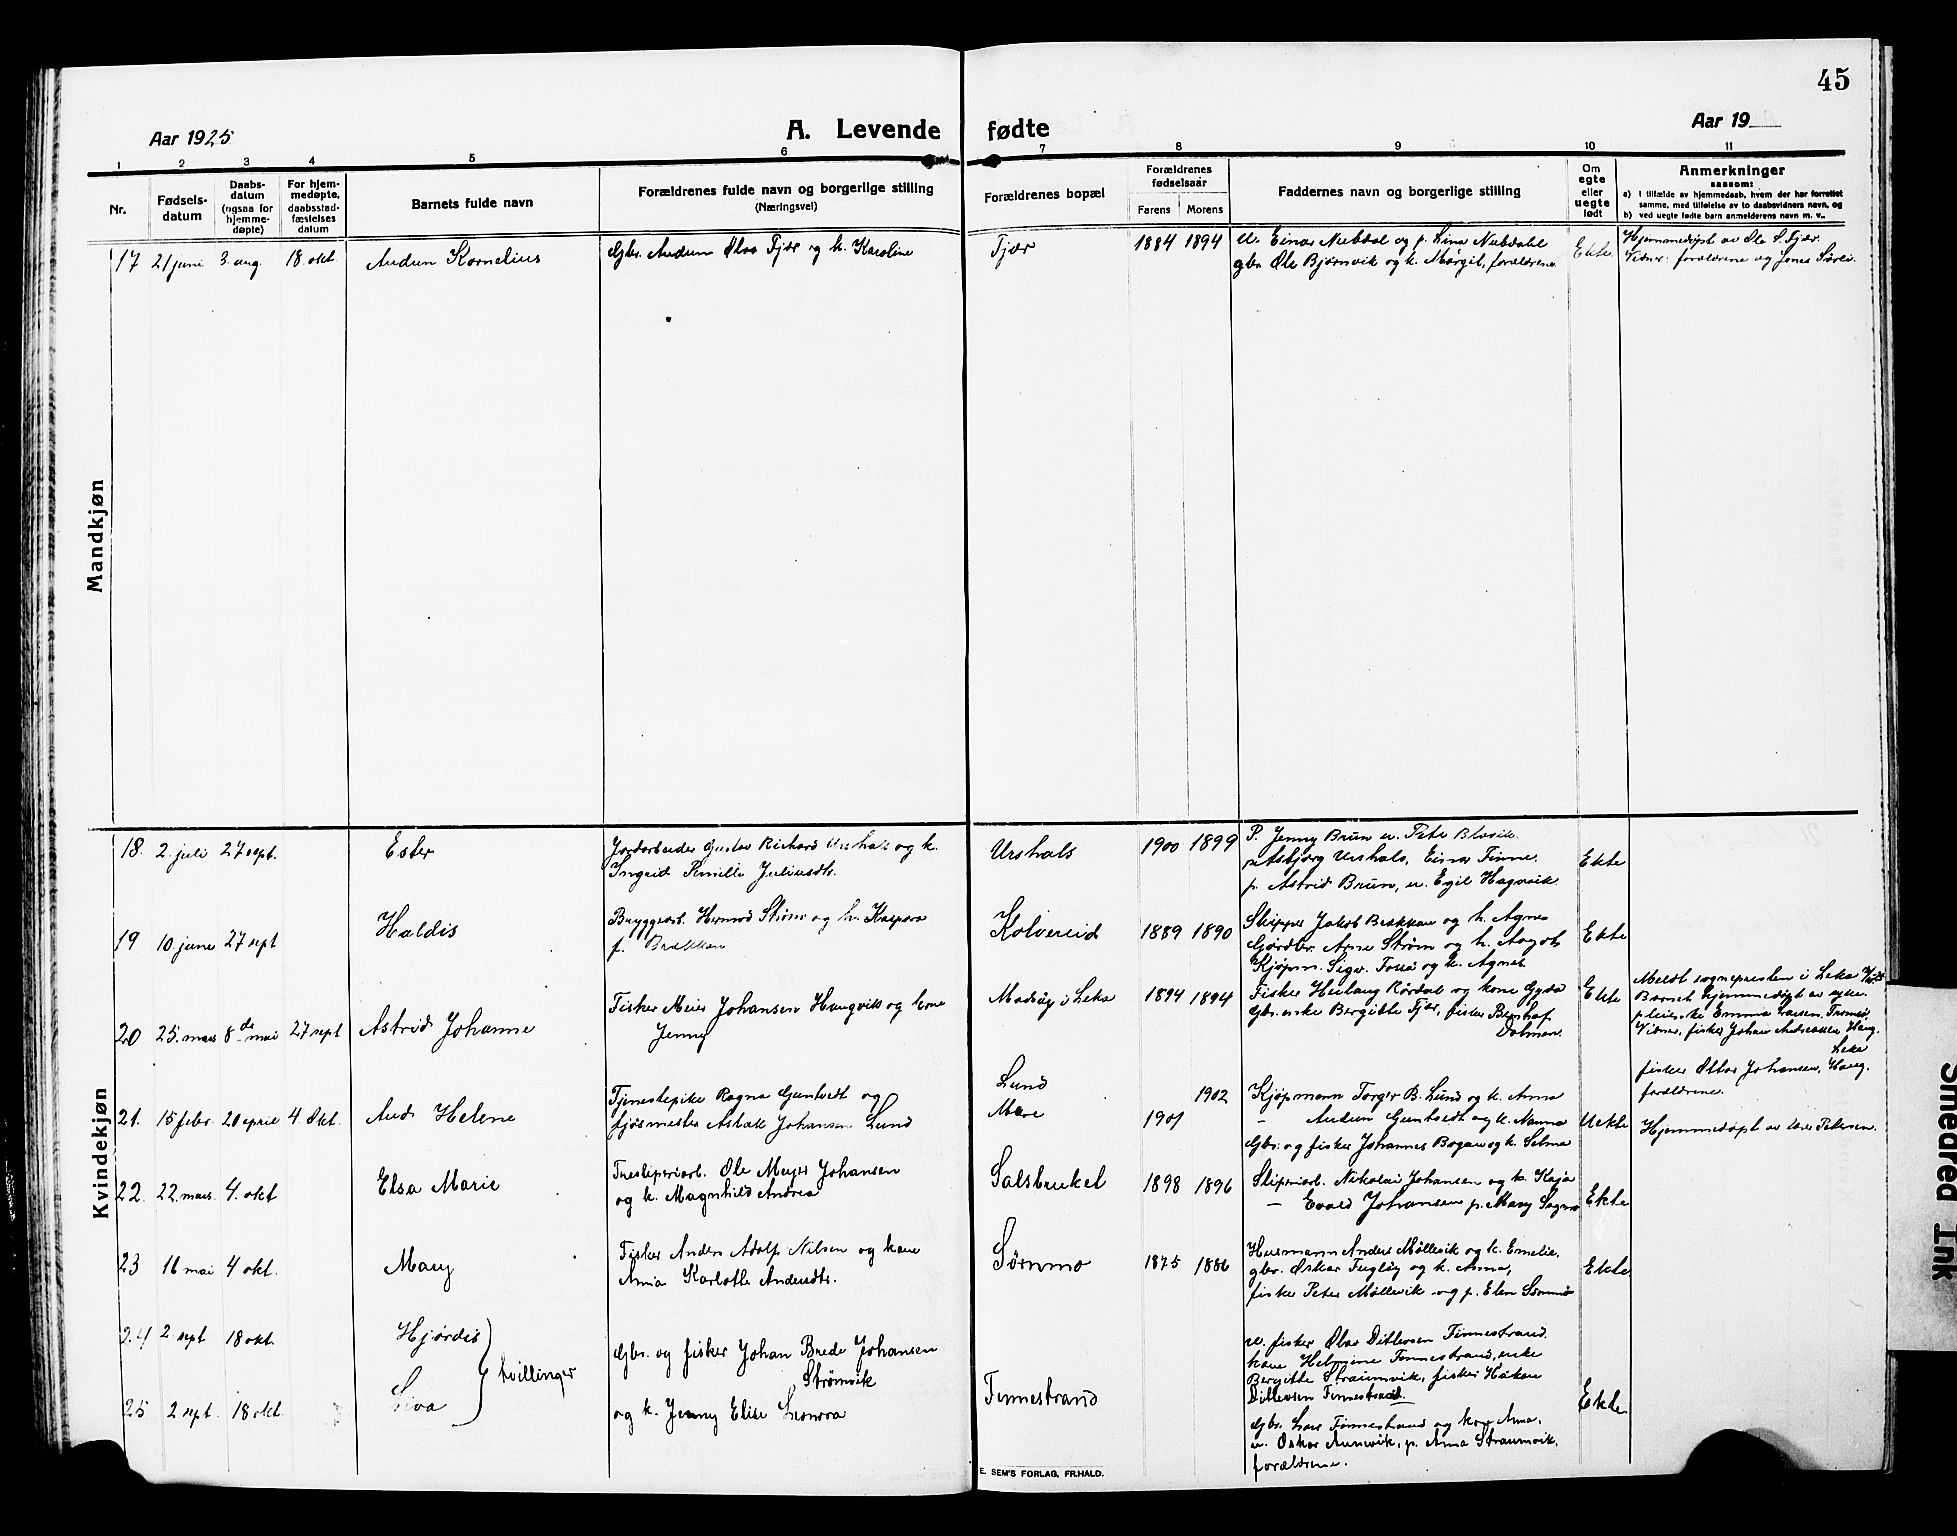 45
Aar 1925
A. Levende fødte
Aar 19
1 2 3 4 5 6 7 8 9 10 11
Nr.
Fødsels-
datum
Daabs-
datum
(ogsaa for
hjemme-
døpte)
For hjem-
medøpte,
daabsstad-
fæstelses
datum
Barnets fulde navn
Forældrenes fulde navn og borgerlige stilling
(Næringsvei)
Forældrenes bopæl
Forældrenes
fødselsaar
Farens Morens
Faddernes navn og borgerlige stilling
Om
egte
eller
uegte
født
Anmerkninger
saasom:
a) i tilfælde av hjemmedaab, hvem der har forrettet
samme, med tilføielse av to daabsvidners navn, og
b) ved uegte fødte barn anmelderens navn m. v..
Mandkjøn
17 21 juni 3. aug. 18. okt. Audun Kornelius
Gbr. Audun Olsa Fjær og k. Karoline
Fjær
1884 1894
u. Einar Nubdal og p. Lina Nubdahl
gbr. Ole Bjørnvik og k. Margit, forældrene.
Ekte
Hjemmedøpt av Ole S. Fjær.
Vidner: forældrene og Jones Sørli.
Kvindekjøn
18. 2. juli 27 sept. Ester
Jordarbeider Gustav Richard Urshals og k.
Ingrid Pernille Juliusdtr.
Urshals
1900 1899
P. Jenny Brun u. Pete Blavik.
p Asbjørg Urshals, Einar Finne.
p. Astrid Brun, u. Egil Hagvik.
Ekte
19 10. june 27 sept Haldis
Bryggearb. Hermod Strøm og h. Kaspara
f. Brakkan
Kolvereid
1889 1890
Skipper Jakob Brakkan og h. Agnes
Gårdbr. Arne Strøm og h. Aagot
Kjøpm. Sigv. Torså og k. Agnes.
Ekte
20 25. mars 8de mai 27 sept Astrid Johanne
Fisker Meier Johansen Haugvik og kone
Jenny
Madsøy i Leka
1894 1894
Fisker Heilaug Rørdal og kone Gyda
Gbr. enke Bergitte Fjær, fisker Bernhof
Dolmen.
Ekte
Meldt sognepresten i Leka
Barnet hjemmedøpt av syke-
pleierske Emma Larsen, Tromsø.
Vidner, fisker Johan Andreassen Haug.
Leka
fisker Ottar Johansen, Haug.
forældrene.
21. 15 febr. 20 april 4. Okt. Aud Helene
Tjenestepike Ragna Gunhildt og
fjøsmester Aslak Johansen Lund
Lund
Mære
1902
1901
Kjøpmann Torger B. Lund og k. Anna
– Audun Gunhildt og k. Nanna
Gbr. og fisker Johannes Bogan og k. Selma
Uekte
Hjemmedøpt av lærer Petersen.
22. 22. mars. 4. okt Elsa Marie
Tresliperiarb. Ole Meyer Johansen
og k. Magnhild Andrea
Salsbruket
1898 1896
Sliperiarb. Nikolai Johansen og k. Kaja
– Evald Johansen p. Mary Sagmo
Ekte
23 16 mai 4 okt. Mary
Fisker Anders Adolf Nilsen og kone
Anna Karlotte Andersdtr.
Sørnmo
1875 1886
Husmann Anders Møllevik og k. Emelie.
gbr. Oskar Fugløy og k. Anna,
fisker Peter Møllevik og p. Elen Sørnmo
Ekte
24 2 sept 18 okt. Hjørdis
tvillinger
25 2 sept. 18 okt. Liva
Gbr. og fisker Johan Brede Johansen
Strømvik
og k. Jenny Elise Leonora
Finnestrand
u. fisker Olav Ditlevsen Finnestrand.
kone Helmine Finnestrand, enke
Bergitte Straumvik, fisker Håkon
Ditlevsen Finnestrand.
Gbr. Lars Finnestrand og kone Anna.
u. Oskar Aunvik, p. Anna Straumvik.
forældrene.
Ekte
E. SEM'S FORLAG, FR.HALD.
Smeared Ink